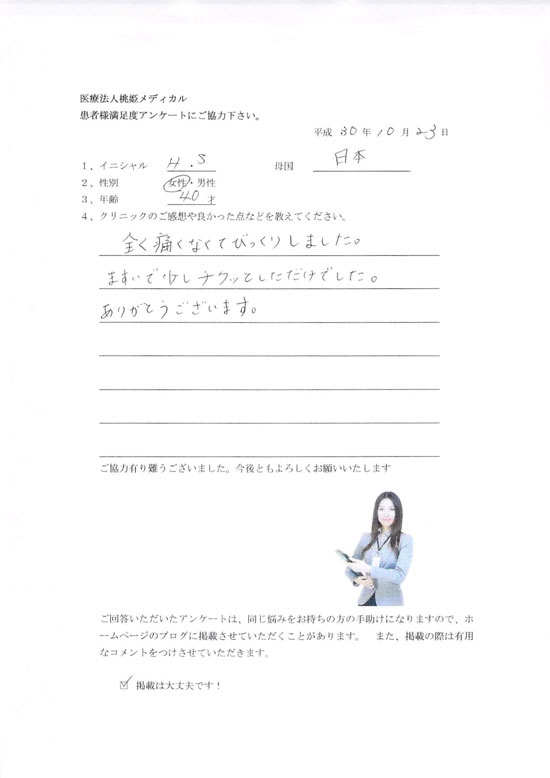 医療法人桃姫メディカル
患者様満足度アンケートにご協力下さい。
平成 30 年 10 月 23 日
1、イニシャル H.S 母国 日本
2、性別 女性・男性
3、年齢 40 才
4、クリニックのご感想や良かった点などを教えてください。
全く痛くなくてびっくりしました。
ますいで少しチクッとしただけでした。
ありがとうございます。
ご協力有り難うございました。今後ともよろしくお願いいたします
ご回答いただいたアンケートは、同じ悩みをお持ちの方の手助けになりますので、ホ
ームページのブログに掲載させていただくことがあります。 また、掲載の際は有用
なコメントをつけさせていただきます。
☑ 掲載は大丈夫です！